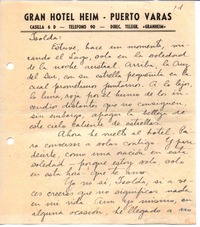 GRAN HOTEL HEIM - PUERTO VARAS
CASILLA 6 D - TELEFONO 90 - DIREC. TELEGR. «GRANHEIM»
Isolda:
Estuve, hace un momento, mi-
rando el Lago, sola en la soledad de
la noche austral. Arriba, la Cruz
del Sur, con su estrella pequeñita en la
cual prendimos juntos. A lo lejos,
la luna, roja por el humo de los in-
cendios distantes que no consiguen,
sin embargo, apagar la
este cielo caliente de estrellas.
Ahora he vuelto al hotel. Pa-
ra conversar a solas contigo. Y para
decirte, como una noción en esta
soledad - porque estoy solo, solo
en esta hora - que te amo.
Yo no sé, Isolda, si a ve-
ces creerás que no significas nada
en mi vida. Aun yo mismo, en
alguna ocasión, he llegado a no